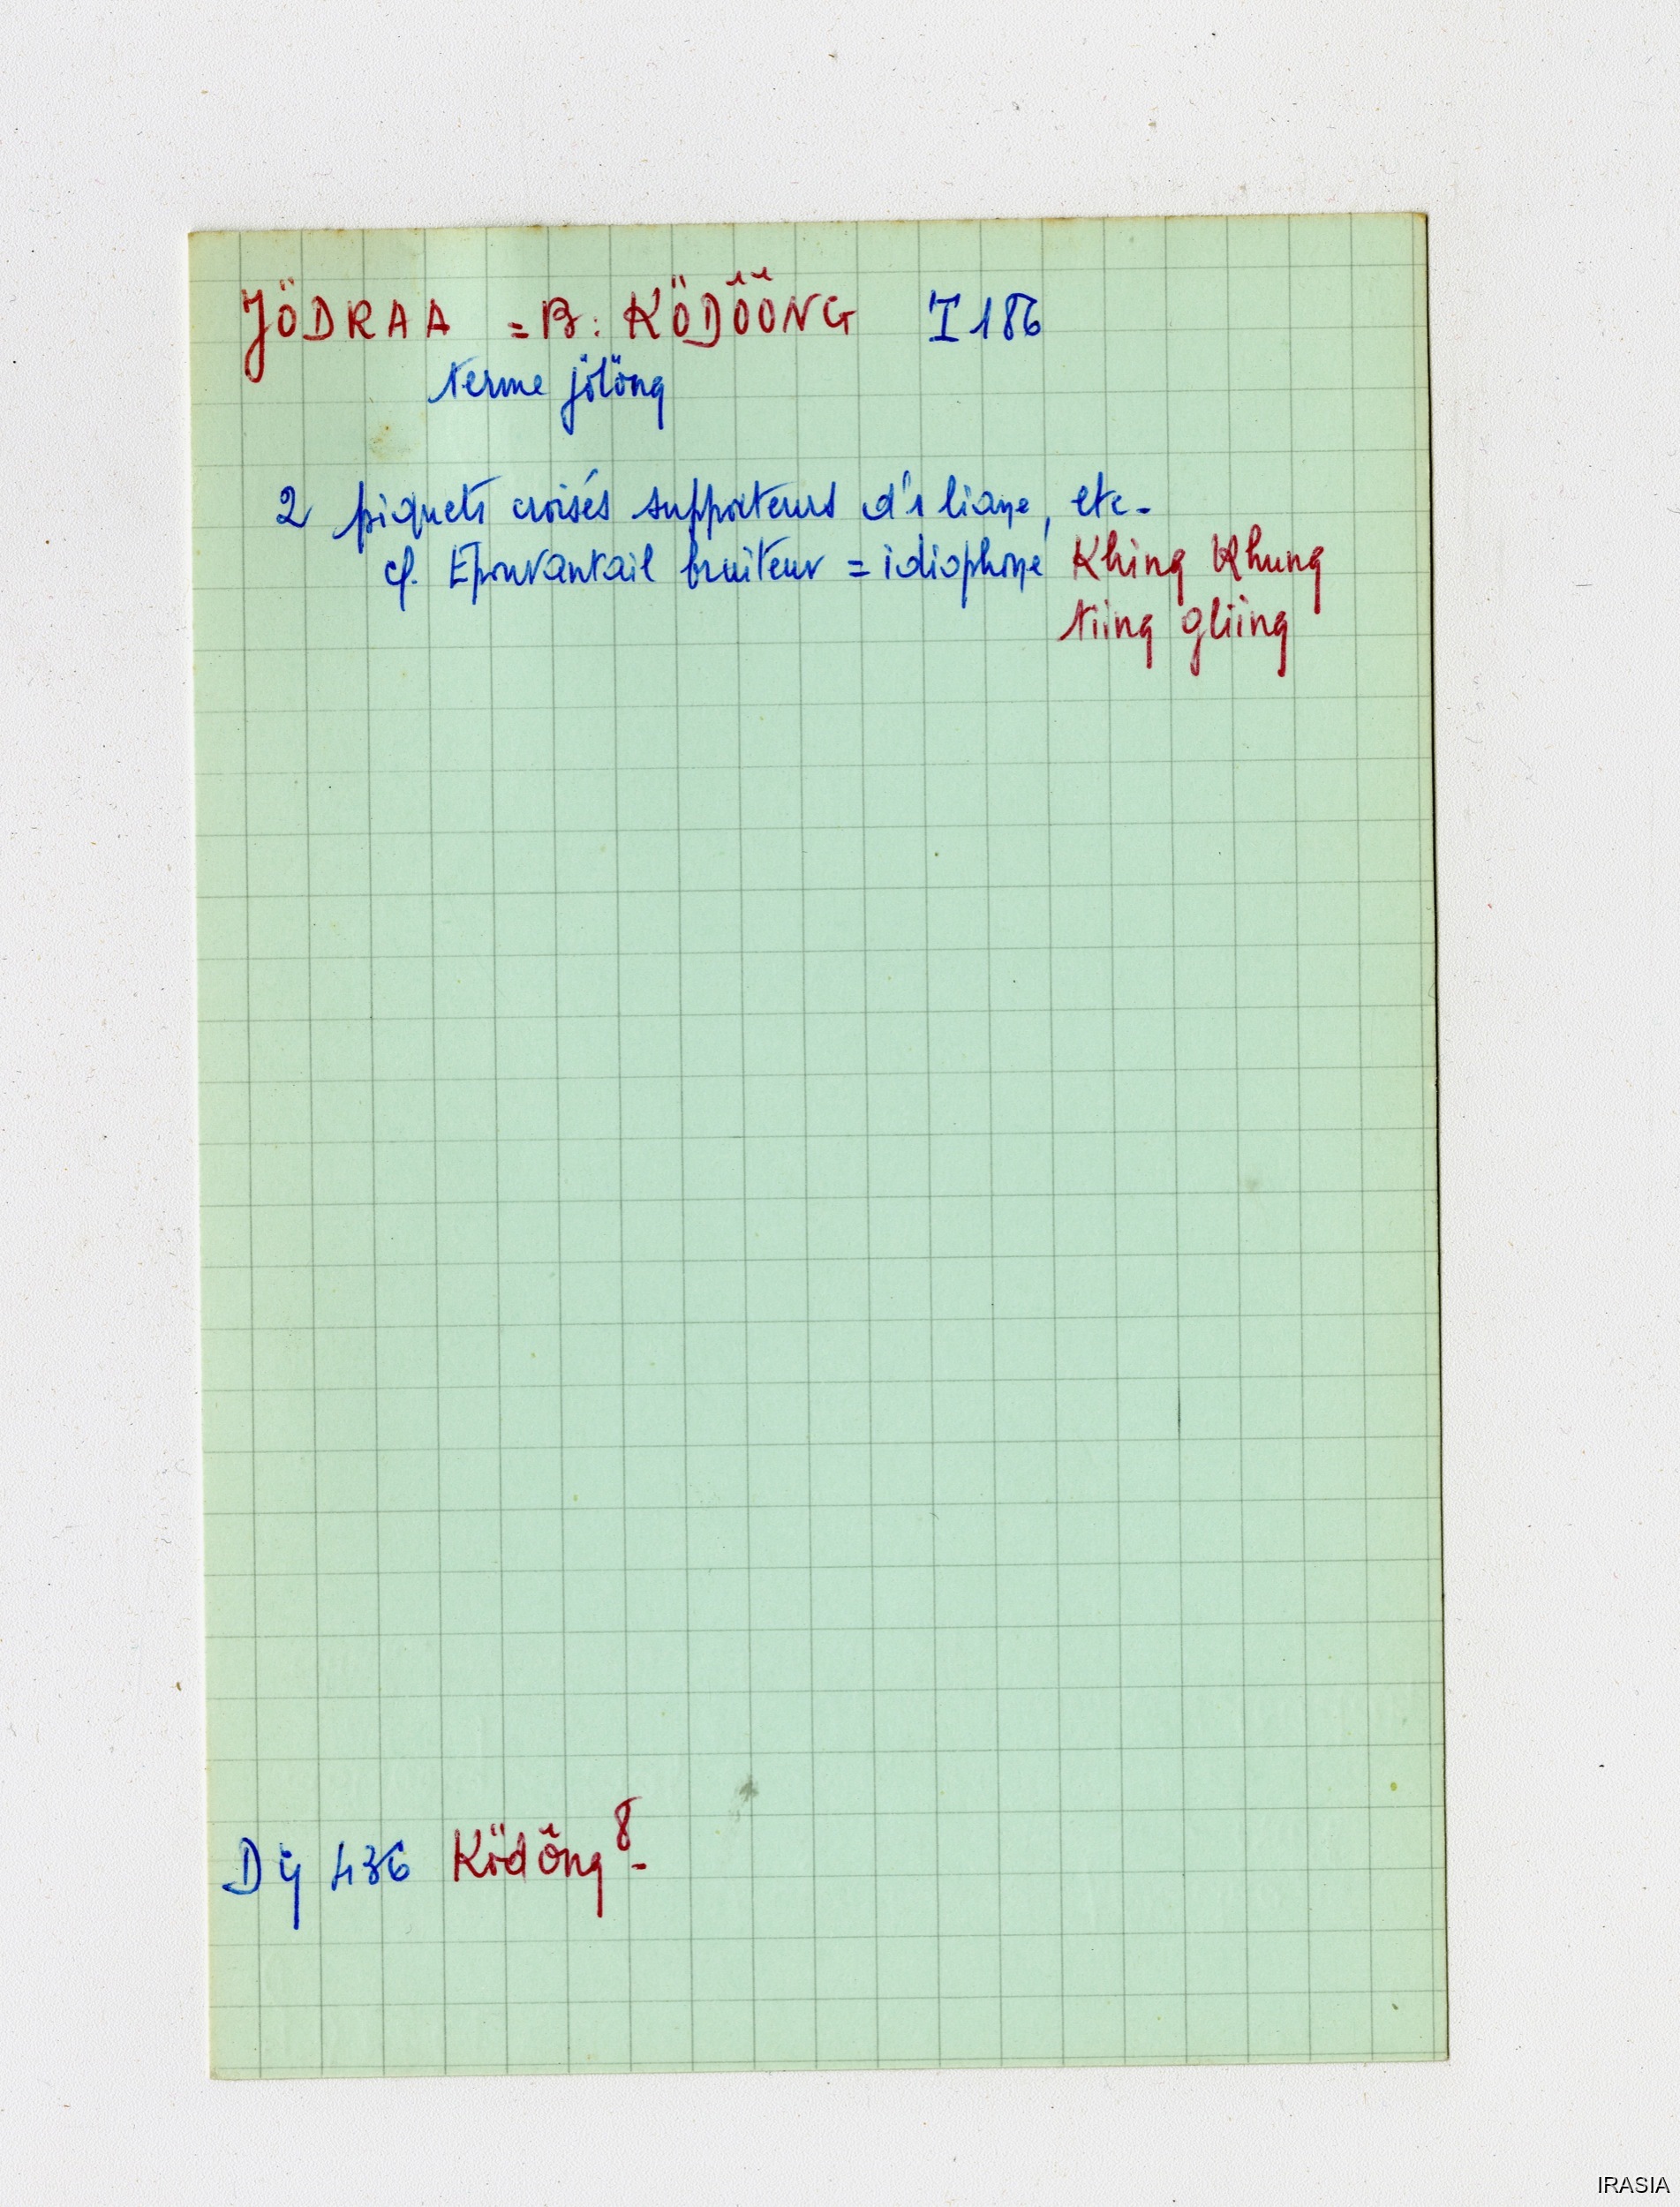 JÖDRAA = B: KÖDÔ̆Ô̆NG I 186
terme jölöng
2 piquets croisés supporteurs d'1 liane, etc.
cf. Epouvantail bruiteur = idiophone Khing Khung
tiing gliing
Dÿ 436 Ködô̆ng 8.
IRASIA